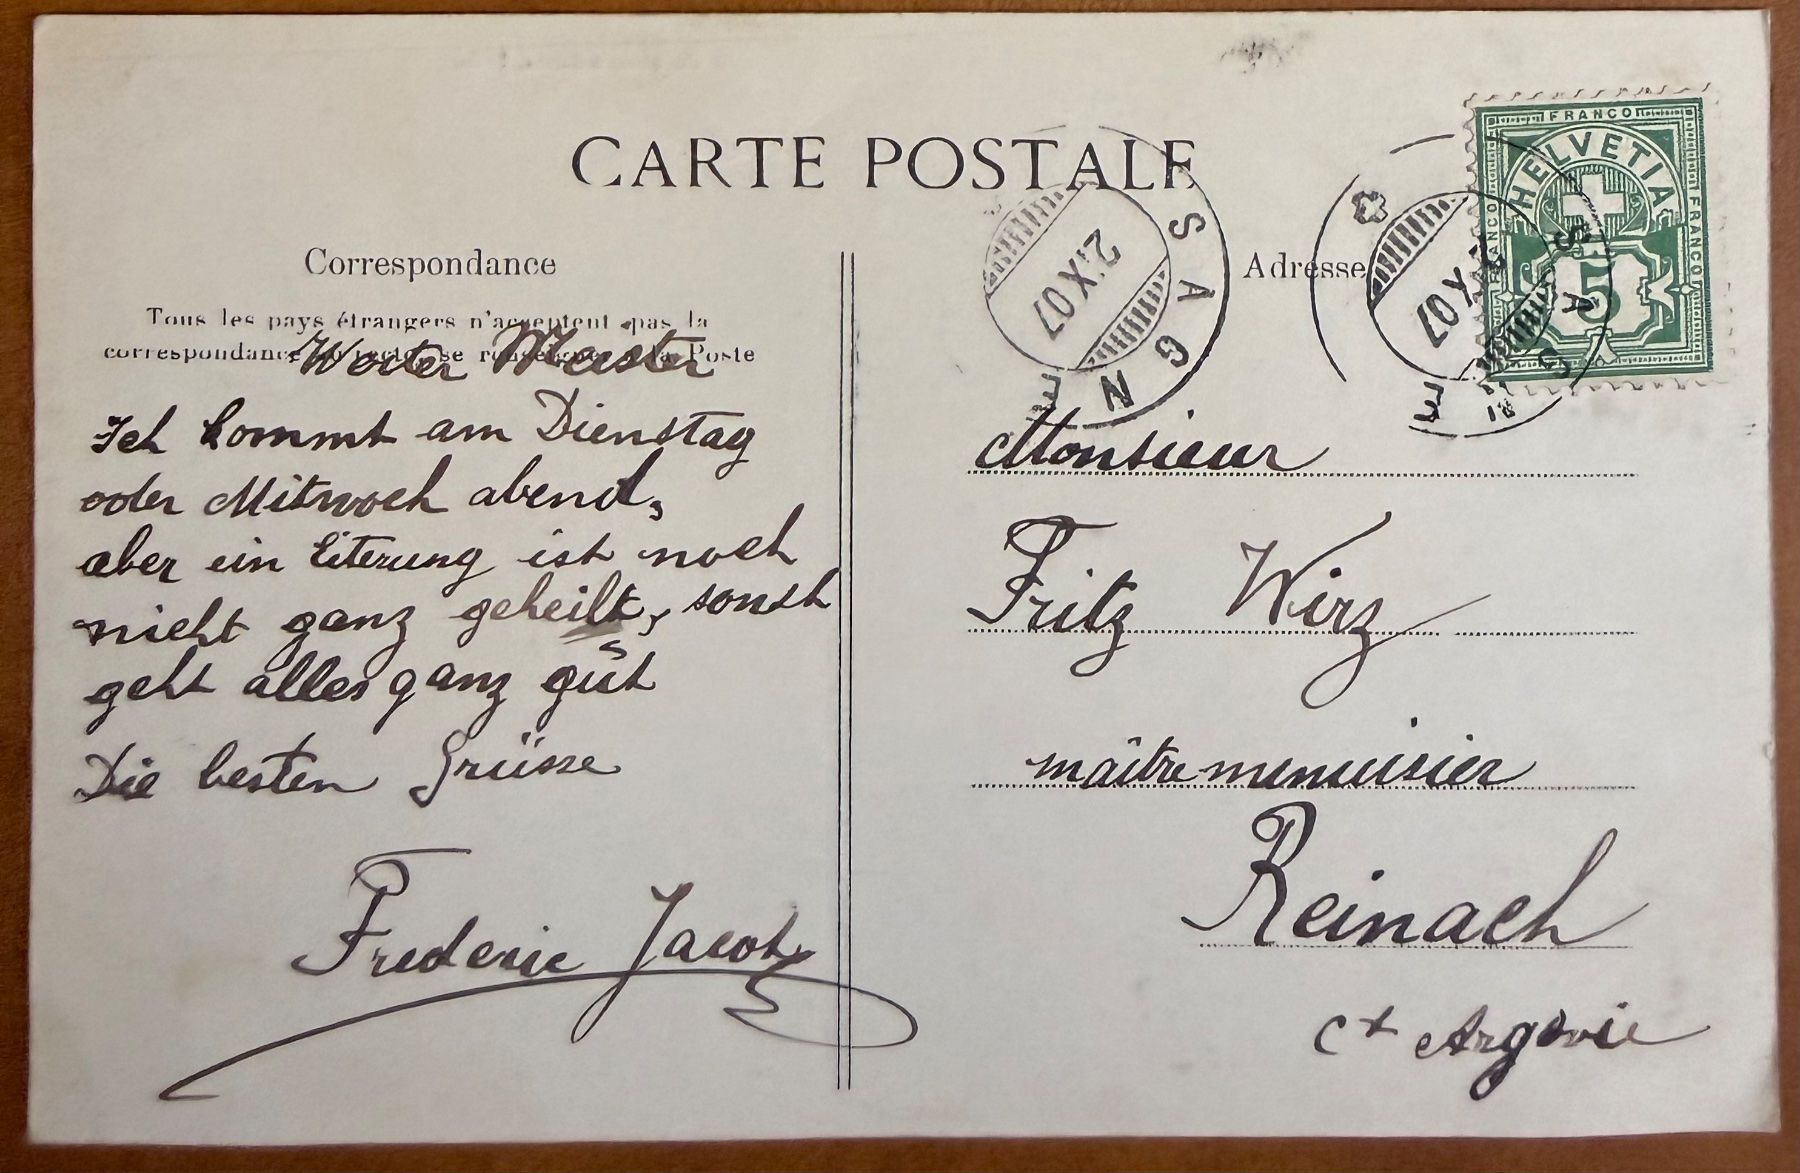 CARTE POSTALE
Correspondance
Tous les pays étrangers n'acceptent pas la
correspondance se renseigner à la Poste
Werter Meister
Ich kommt am Dienstag
oder Mitwoch abend,
aber ein Eiterung ist noch
nicht ganz geheilt, sonst
geht alles ganz gŭt
Die besten Grüsse
Frederic Jacot
SAGNE
2.X.07
Adresse
SAGNE
X 07
FRANCO
HELVETIA
FRANCO
FRANCO
5
Monsieur
Fritz Wirz
maître menuisier
Reinach
Ct Argovie